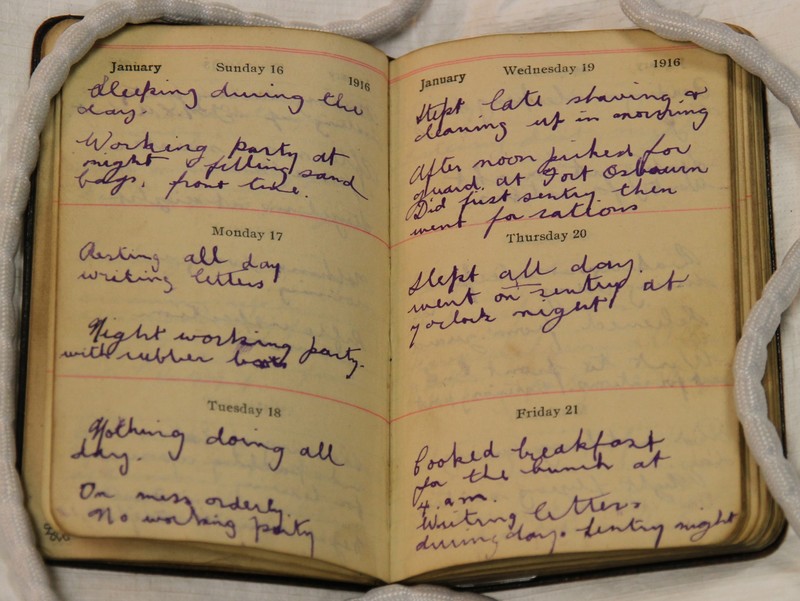 January Sunday 16 1916
Sleeping during the
day.
Working party at
night filling sand
bags. front line.
Monday 17
Resting all day
writing letters
Night working party.
with rubber boots
Tuesday 18
Nothing doing all
day.
On mess orderly.
No working party
January Wednesday 19 1916
Slept late shaving &
cleaning up in morning
After noon picked for
guard. at Fort Osbourn
Did first sentry then
went for rations
Thursday 20
Slept all day.
went on sentry at
7 oclock night
Friday 21
Cooked breakfast
for the bunch at
4. a.m.
Writing letters
during day. Sentry night